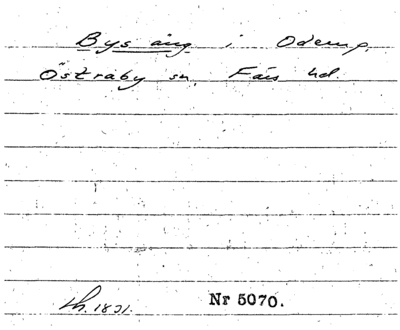 Bys äng i Odemp,
Östraby sn, Färs hd.
Lh. 1831.
Nr 5070.